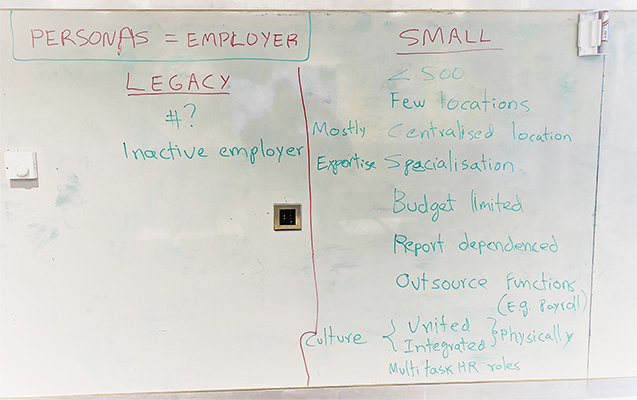 PERSONAS = EMPLOYER
LEGACY
#?
Inactive employer
SMALL
< 500
Few locations
Mostly Centralised location
Expertise Specialisation
Budget limited
Report dependenced
Outsource Functions
(E.g. Payroll)
Culture { United
Integrated } Physically
Multi task HR roles